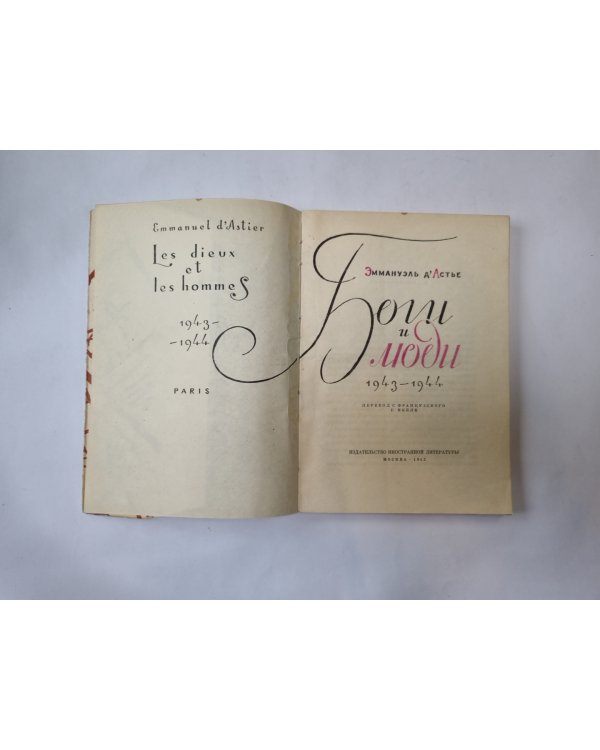 Emmanuel d'Astier
Les dieux
et
les hommes
1943-
-1944
PARIS
Эммануэль д'Астье
Боги
и
люди
1943—1944
ПЕРЕВОД С ФРАНЦУЗСКОГО
ИЗДАТЕЛЬСТВО ИНОСТРАННОЙ ЛИТЕРАТУРЫ
МОСКВА · 1962